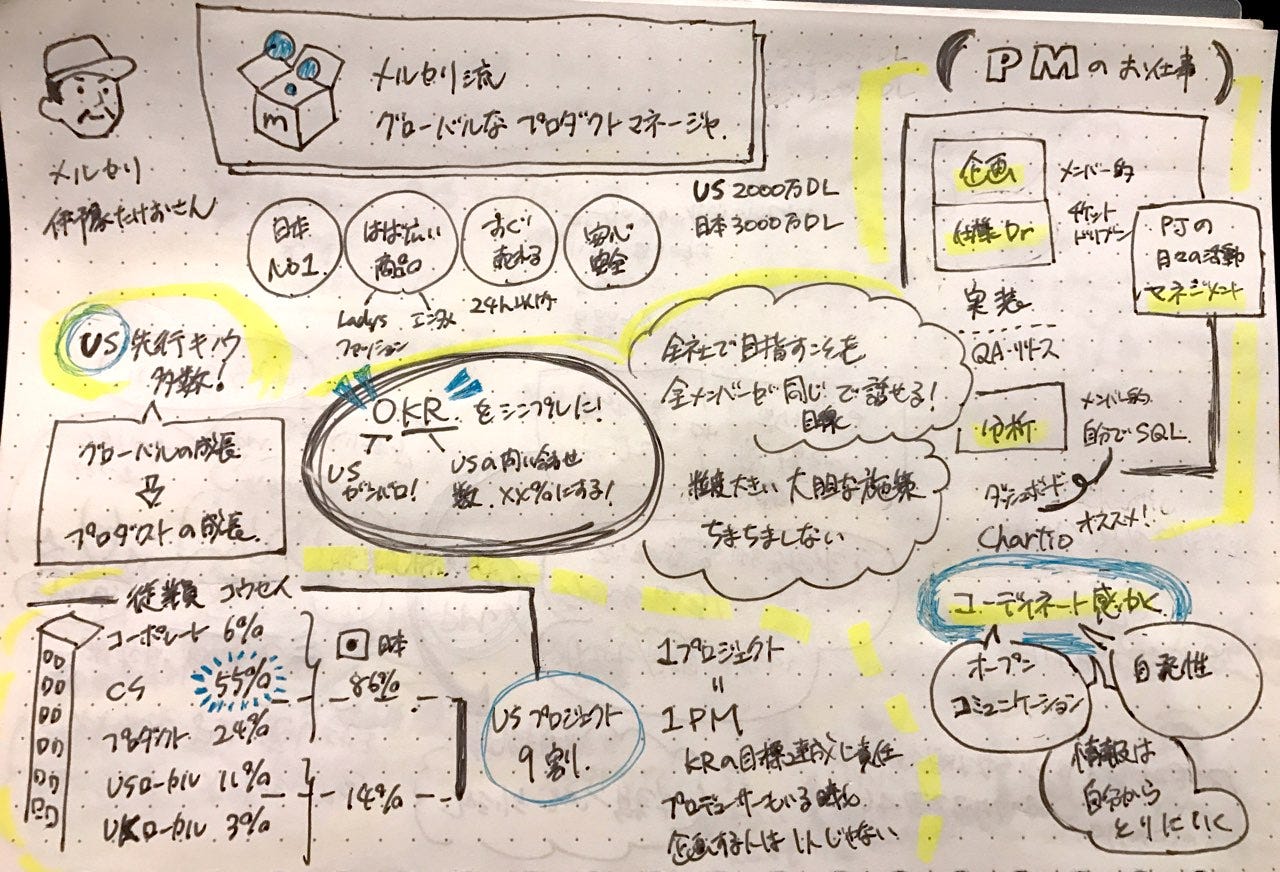 m
メルカリ流
グローバルな プロダクトマネージャ.
メルカリ
伊豫たけおさん
日本
No1.
はば広い
商品
Ladys
ファッション
エンタメ
すぐ
売れる
24h以内
安心
安全
US 2000万DL
日本 3000万DL
US 先行キノウ
多数!
グローバルの成長
プロダクトの成長.
OKR をシンプルに!
US
ガンバロ!
USの問い合せ
数 XX%にする!
全社で目指すこそも
全メンバーが同じ で話せる!
目線
難度大きい 大胆な施策
ちまちましない
(PMのお仕事)
企画
メンバー的
仕様Dr
チケット
ドリブン
実装
QA・リリース
分析
メンバー的
自分でSQL
ダッシュボード
Chartio オススメ!
PJの
日々の活動
マネジメント
従業員 コウセイ
コーポレート 6%
CS 55%
プロダクト 24%
USローカル 11%
UKローカル 3%
日本
86%
14%
USプロジェクト
9割.
1プロジェクト
"
1PM
KRの目標達成に責任
プロデューサーもいる時も
企画するんはしんじゃない
コーディネート感かく
オープン
コミュニケーション
自発性
情報は
自分から
とりにいく